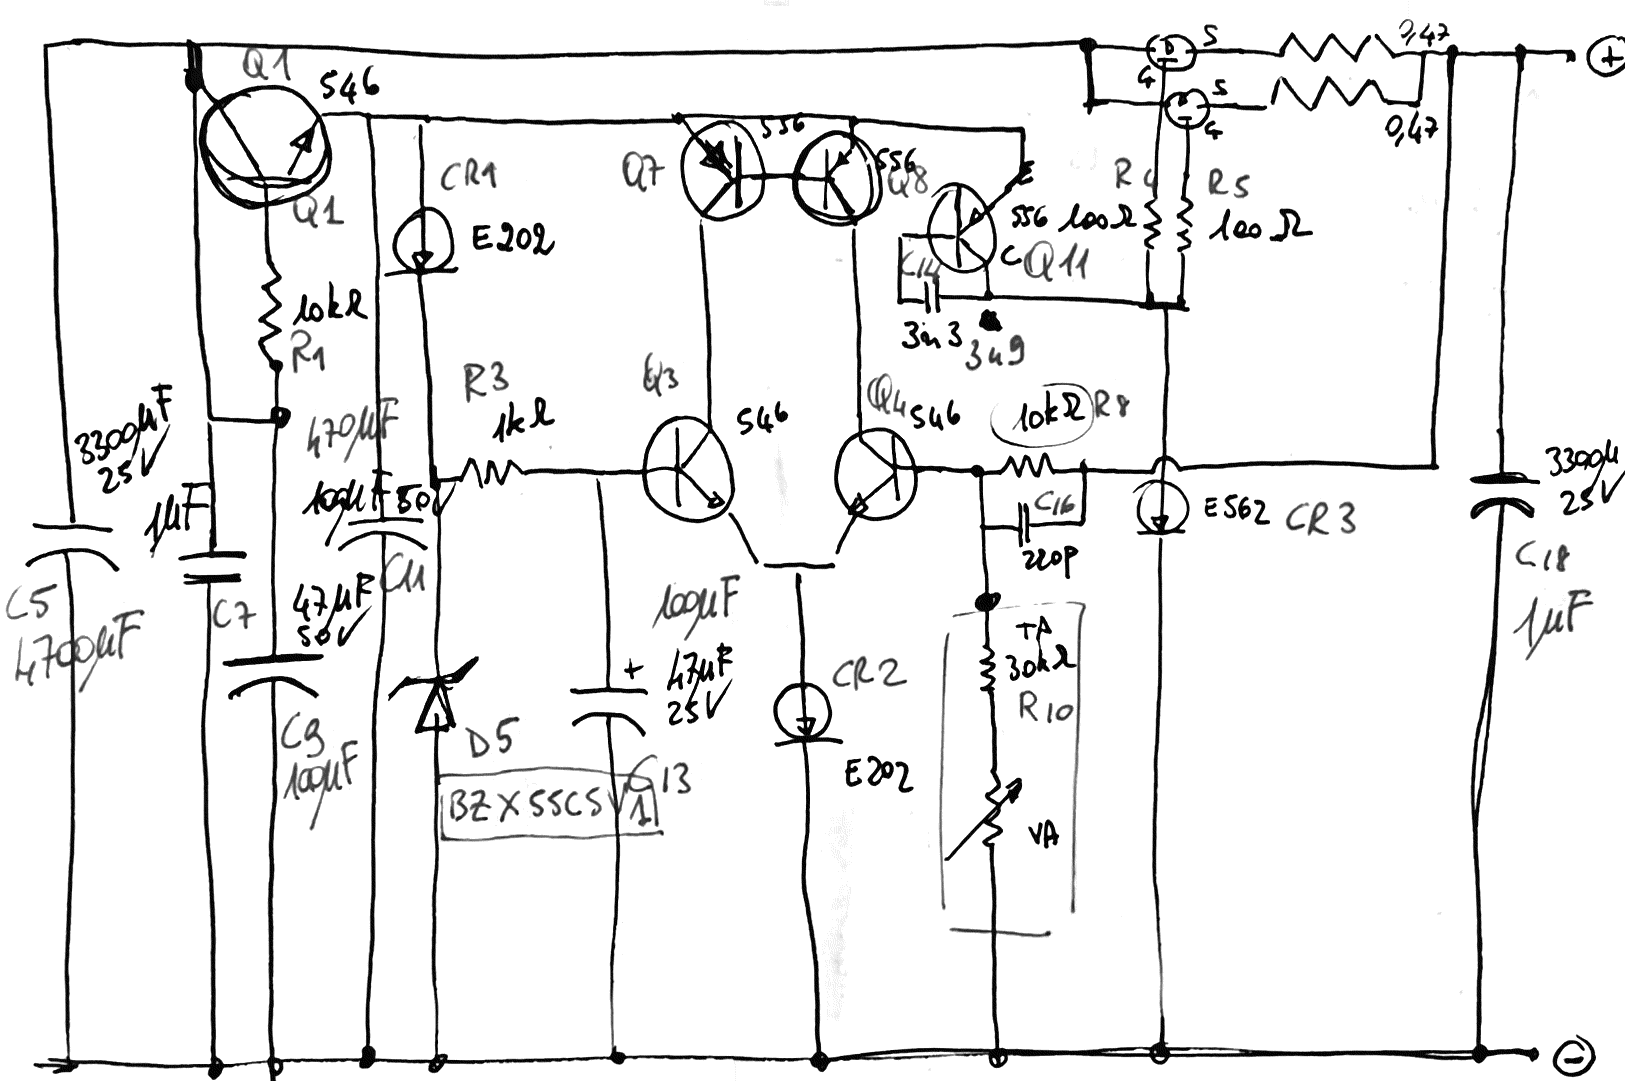 Q1
546
Q1
10kΩ
R1
CR1
E202
556
Q7
556
Q8
E
556
C
Q11
C14
3n3
3n9
D
S
G
0,47
S
G
0,47
+
R4
100Ω
R5
100Ω
R3
1kΩ
Q3
546
Q4
546
10kΩ
R8
C16
220p
E562
CR3
3300μF
25V
C5
4700μF
1μF
C7
470μF
100μF 50V
C11
47μF
50V
C9
100μF
D5
BZX55C5V1
100μF
+
47μF
25V
C13
CR2
E202
TA
30kΩ
R10
VA
3300μ
25V
C18
1μF
−